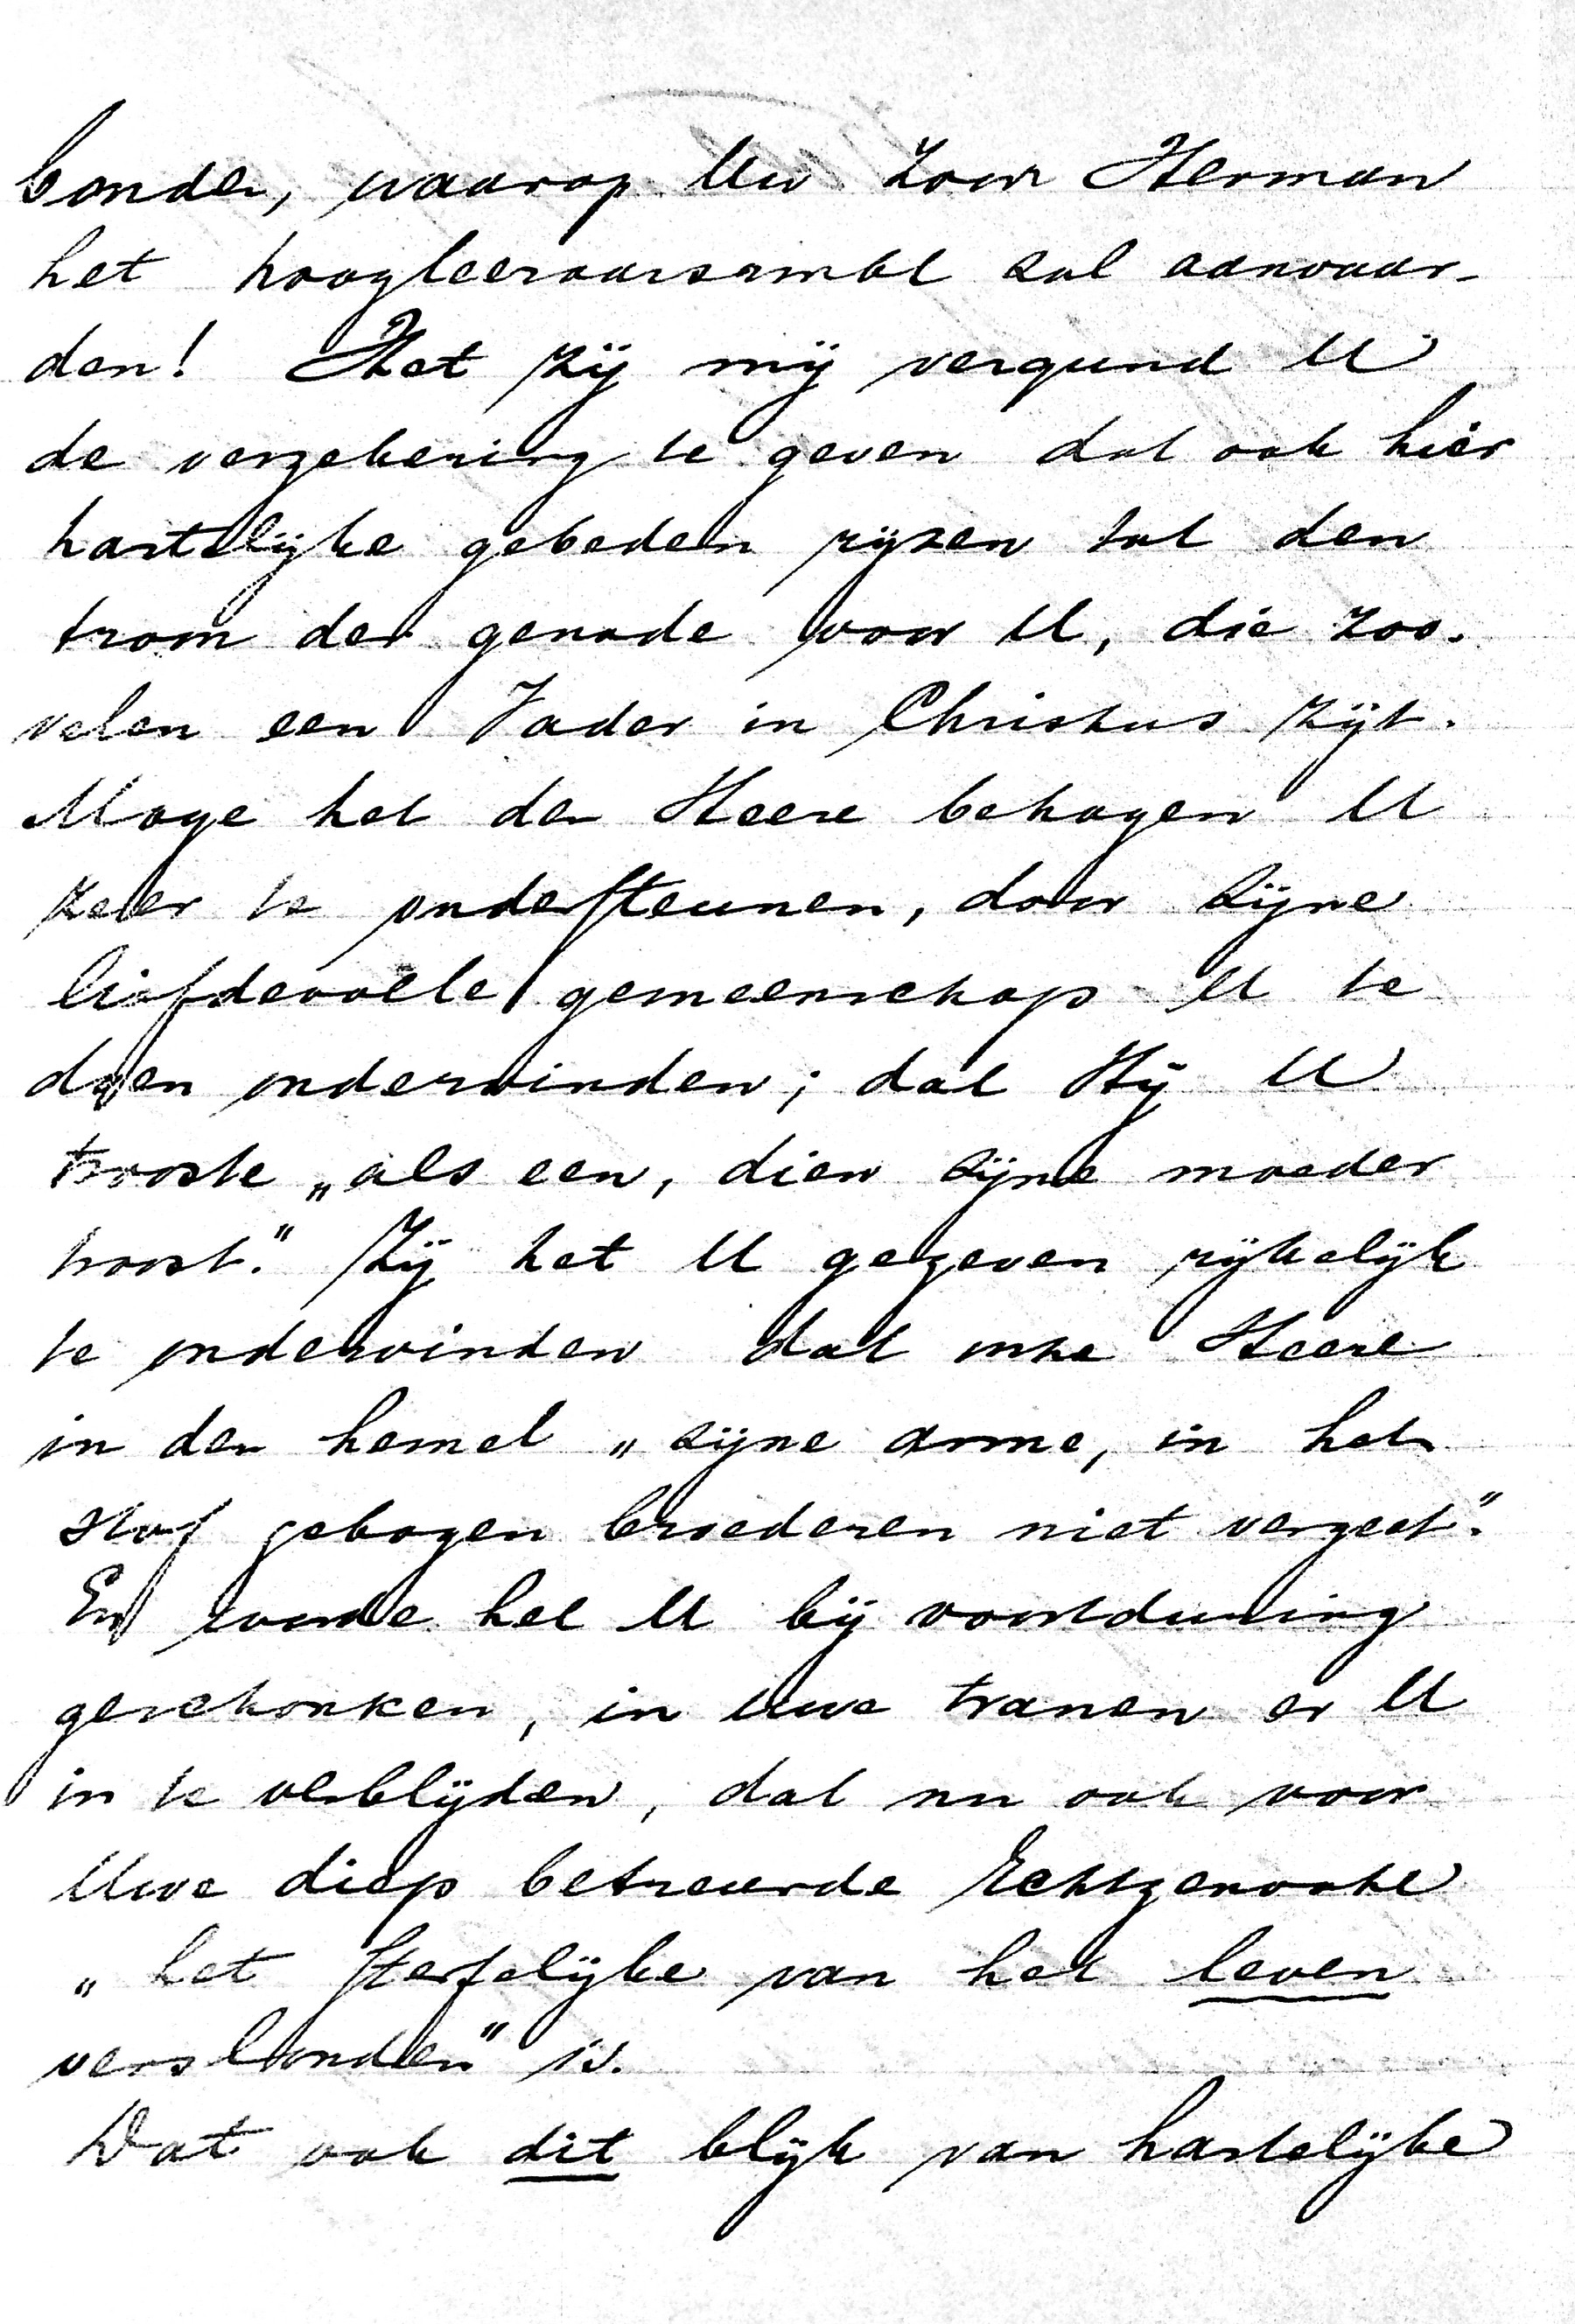 bonden, waarop Uw zoon Herman
het hoogleeraarsambt zal aanvaar-
den! Het zij mij vergund U
de verzekering te geven dat ook hier
hartelijke gebeden rijzen tot den
troon der genade voor U, die zoo-
velen een Vader in Christus zijt.
Moge het den Heere behagen U
zeer te ondersteunen, door zijne
liefdevolle gemeenschap U te
doen ondervinden; dat Hij U
trooste „als een, dien zijne moeder
troost." Zij het U gegeven rijkelijk
te ondervinden dat onze Heere
in den hemel „zijne arme, in het
stof gebogen broederen niet vergeet".
En worde het U bij voortduring
geschonken, in uwe tranen er U
in te verblijden, dat nu ook voor
Uwe diep betreurde Echtgenoote
„het sterfelijke van het leven
verslonden" is.
Dat ook dit blijk van hartelijke